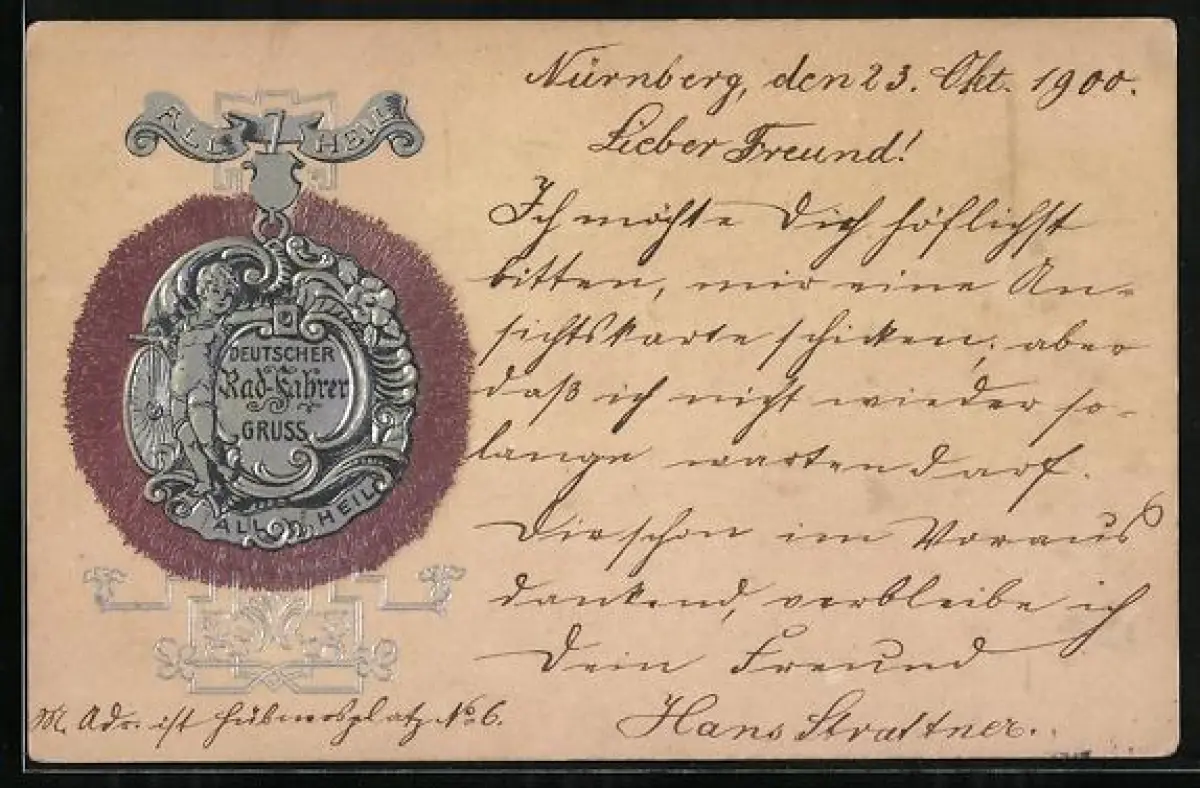 ALL HEIL
DEUTSCHER
Rad-Fahrer
GRUSS
ALL HEIL
Nürnberg, den 23. Okt. 1900.
Lieber Freund!
Ich möchte Dich höflichst
bitten, mir eine An-
sichtskarte schicken, aber
daß ich nicht wieder so-
lange warten darf.
Dir schon im Voraus
dankend, verbleibe ich
Dein Freund
Hans Strattner.
M. Adr. ist Hübnersplatz No 6.